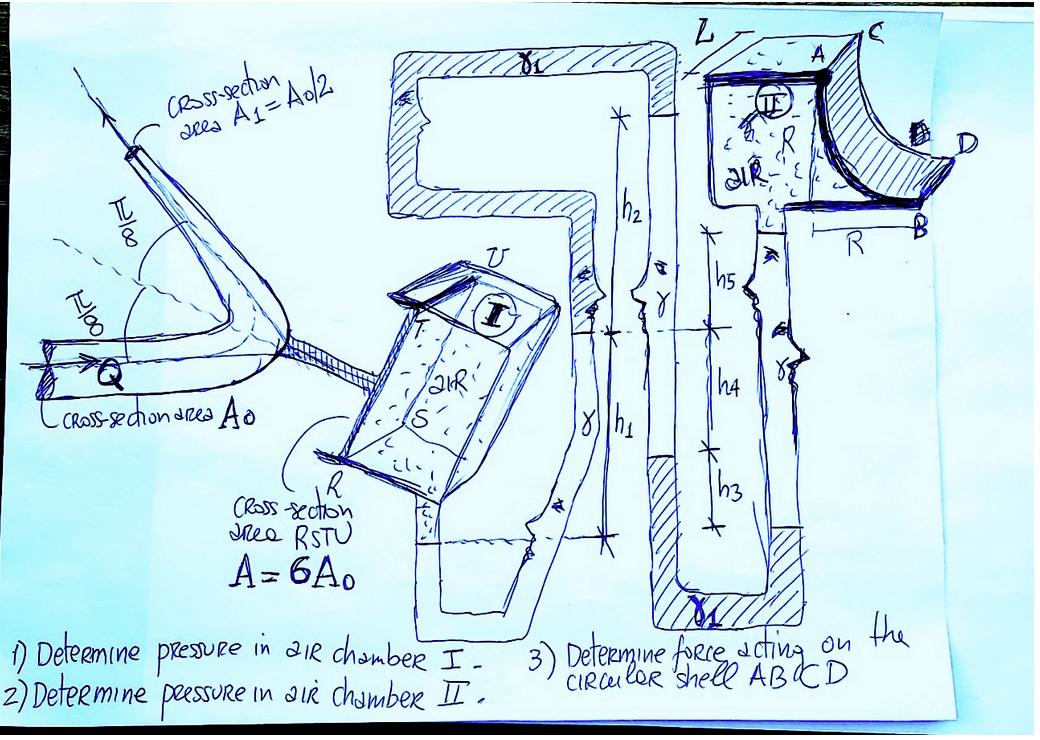 CROSS-section
area A1 = A0/2
π/8
π/8
Q
CROSS-section area A0
CROSS-section
area RSTU
A = 6A0
U
I
T
aIR
S
R
γ1
h2
γ
γ
h1
h5
h4
h3
γ
γ1
L
A
C
II
R
aIR
D
B
R
1) Determine pressure in aIR chamber I.
2) Determine pressure in air chamber II.
3) Determine force acting on the
circular shell ABCD